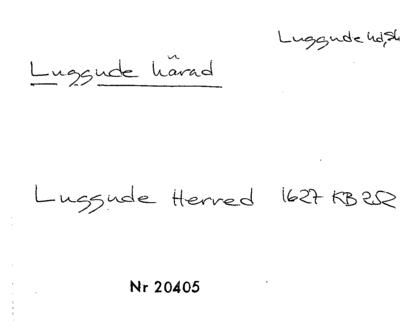 Luggude hd, Sk
Luggude härad
Luggude Herred 1627 KB 252
Nr 20405